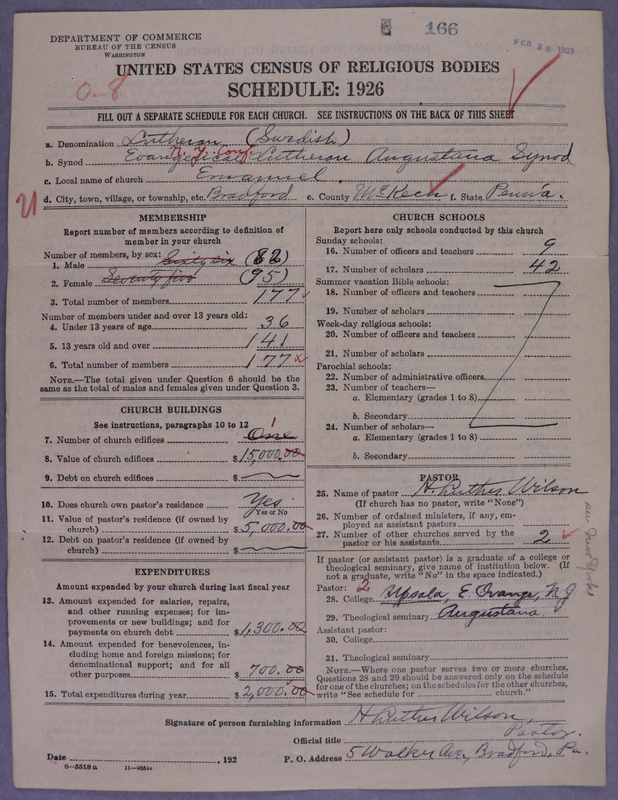 166
FEB 28 1927
DEPARTMENT OF COMMERCE
BUREAU OF THE CENSUS
WASHINGTON
UNITED STATES CENSUS OF RELIGIOUS BODIES
SCHEDULE: 1926
0-8
FILL OUT A SEPARATE SCHEDULE FOR EACH CHURCH. SEE INSTRUCTIONS ON THE BACK OF THIS SHEET
a. Denomination Lutheran (Swedish)
N. Y. Conf.
b. Synod Evangelical Lutheran Augustana Synod
c. Local name of church Emanuel
d. City, town, village, or township, etc. Bradford e. County McKean f. State Penn'a.
MEMBERSHIP
Report number of members according to definition of
member in your church
Number of members, by sex:
1. Male Sixty six (82)
2. Female Seventy five (95)
3. Total number of members 177
Number of members under and over 13 years old:
4. Under 13 years of age 36
5. 13 years old and over 141
6. Total number of members 177
NOTE.—The total given under Question 6 should be the
same as the total of males and females given under Question 3.
CHURCH BUILDINGS
See instructions, paragraphs 10 to 12
7. Number of church edifices One 1
8. Value of church edifices $15,000.00
9. Debt on church edifices $
10. Does church own pastor's residence Yes
Yes or No
11. Value of pastor's residence (if owned by
church) $5,000.00
12. Debt on pastor's residence (if owned by
church) $
EXPENDITURES
Amount expended by your church during last fiscal year
13. Amount expended for salaries, repairs,
and other running expenses; for im-
provements or new buildings; and for
payments on church debt $1,300.00
14. Amount expended for benevolences, in-
cluding home and foreign missions; for
denominational support; and for all
other purposes 700.00
15. Total expenditures during year $2,000.00
CHURCH SCHOOLS
Report here only schools conducted by this church
Sunday schools:
16. Number of officers and teachers 9
17. Number of scholars 42
Summer vacation Bible schools:
18. Number of officers and teachers
19. Number of scholars
Week-day religious schools:
20. Number of officers and teachers
21. Number of scholars
Parochial schools:
22. Number of administrative officers
23. Number of teachers—
a. Elementary (grades 1 to 8)
b. Secondary
24. Number of scholars—
a. Elementary (grades 1 to 8)
b. Secondary
PASTOR
25. Name of pastor H. Luther Wilson
(If church has no pastor, write "None")
26. Number of ordained ministers, if any, em-
ployed as assistant pastors
27. Number of other churches served by the
pastor or his assistants 2
If pastor (or assistant pastor) is a graduate of a college or
theological seminary, give name of institution below. (If
not a graduate, write "No" in the space indicated.)
Pastor: 2
28. College Upsala, E. Orange, N J
29. Theological seminary Augustana
Assistant pastor:
30. College
31. Theological seminary
NOTE.—Where one pastor serves two or more churches,
Questions 28 and 29 should be answered only on the schedule
for one of the churches; on the schedules for the other churches,
write "See schedule for church."
Signature of person furnishing information H Luther Wilson
Official title Pastor
Date , 192 P. O. Address 5 Walker Ave, Bradford, Pa.
8—5518 a 11—9654